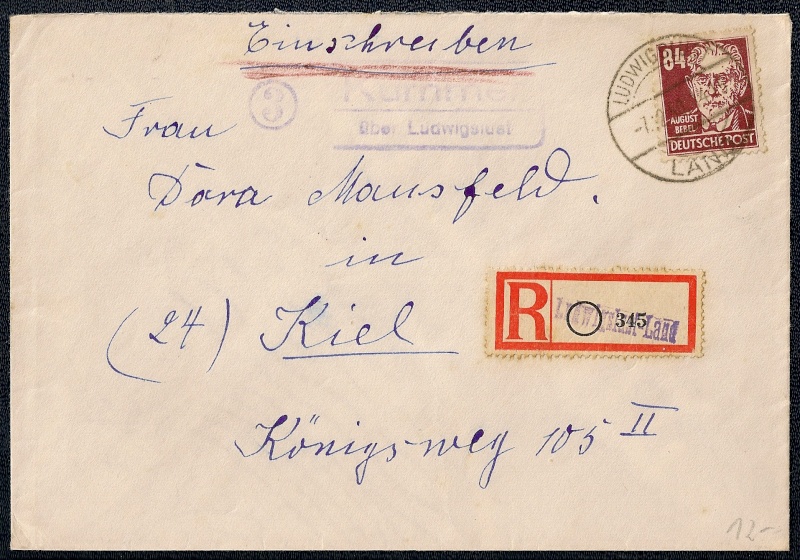 Einschreiben
3
Kummer
über Ludwigslust
LUDWIGSLUST
LAND
84
AUGUST
BEBEL
DEUTSCHE POST
Frau
Dora Mansfeld.
in
(24) Kiel
R
Ludwigslust-Land
345
Königsweg 105 II
12-